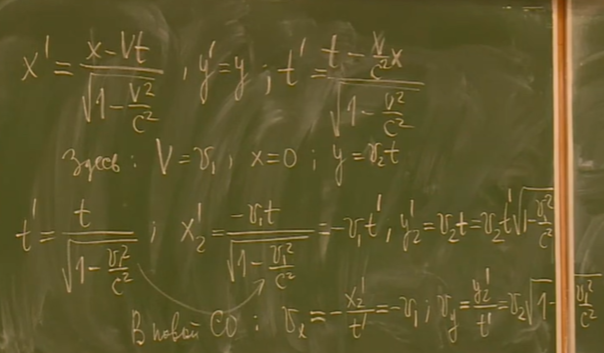 x' = \frac{x - Vt}{\sqrt{1 - \frac{V^2}{c^2}}}, y' = y; t' = \frac{t - \frac{V}{c^2}x}{\sqrt{1 - \frac{V^2}{c^2}}}
Здесь: V = v_1, x = 0; y = v_2 t
t' = \frac{t}{\sqrt{1 - \frac{v_1^2}{c^2}}}; x_2' = \frac{-v_1 t}{\sqrt{1 - \frac{v_1^2}{c^2}}} = -v_1 t', y_2' = v_2 t = v_2 t' \sqrt{1 - \frac{v_1^2}{c^2}}
В новой СО: v_x = -\frac{x_2'}{t'} = -v_1; v_y = \frac{y_2'}{t'} = v_2 \sqrt{1 - \frac{v_1^2}{c^2}}